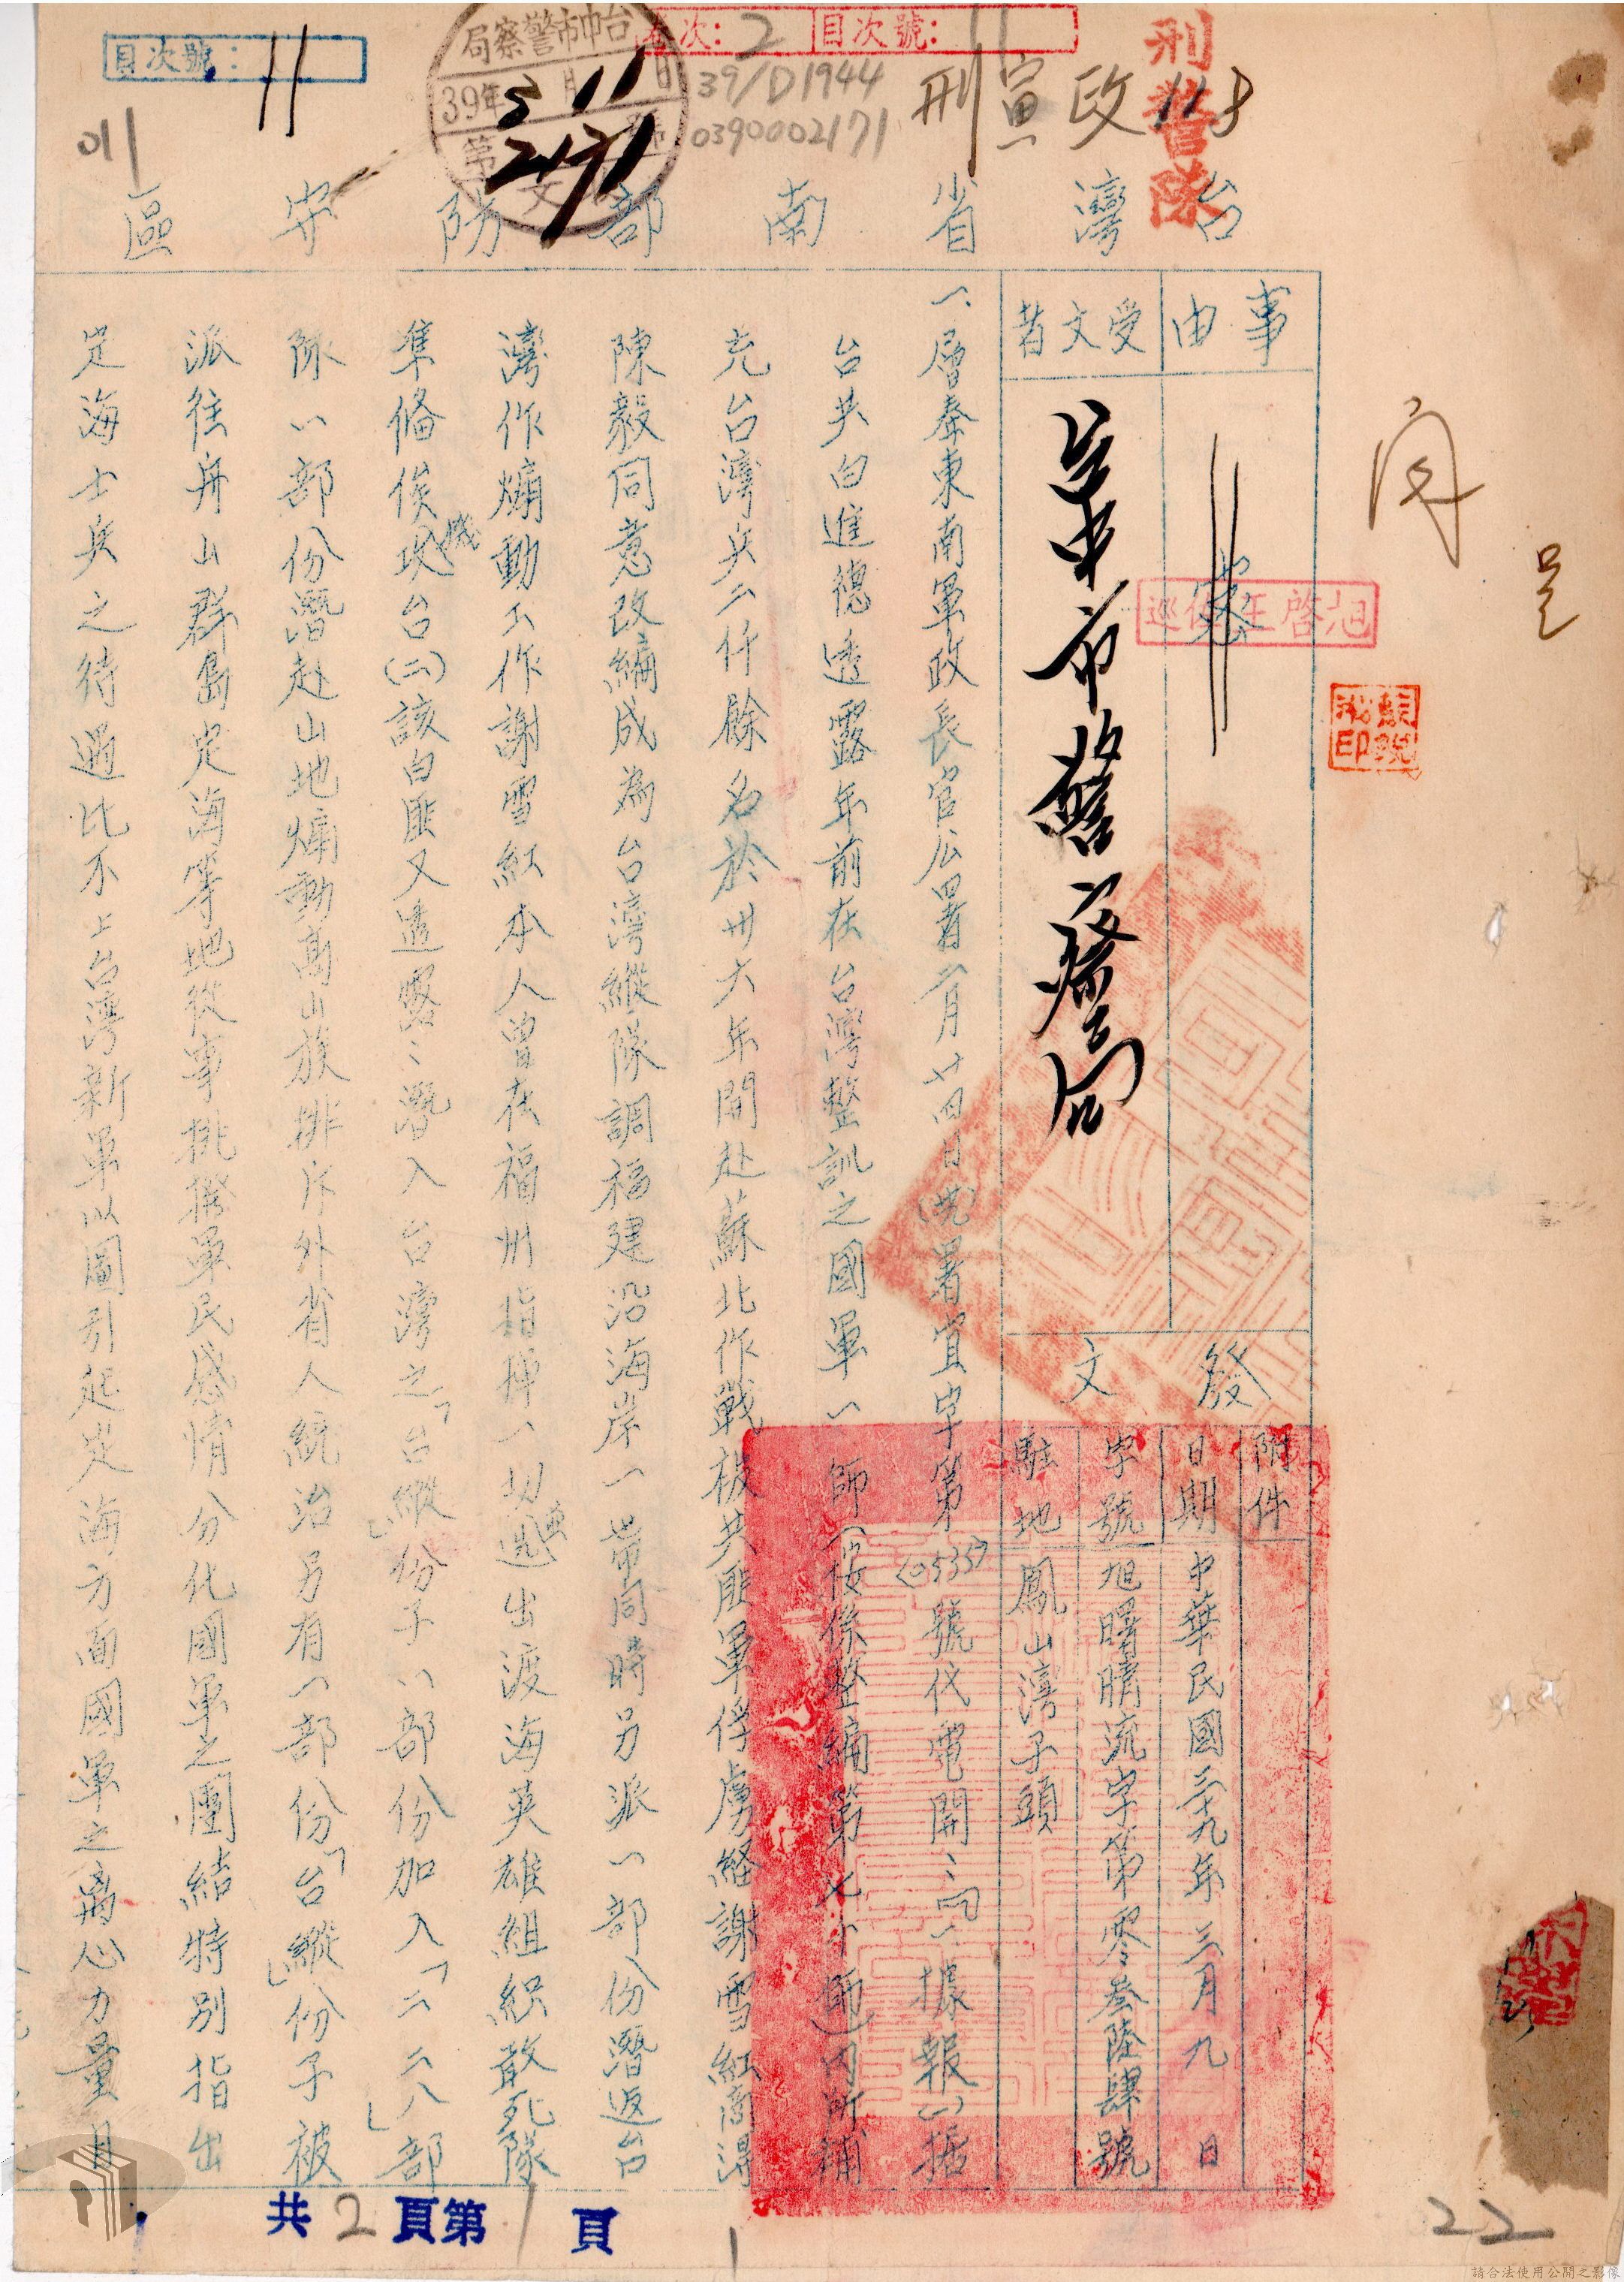 目次號：11
台中市警察局
39年3月11日
第2171號
文
卷次：2 目次號：11
39/D1944
0390002171
刑警隊
刑寅政118
011
台灣省南部防守區
事由
受文者
台中市警察局
發文
附件
日期 中華民國三十九年三月九日
字號 旭曙晴流字第零叁陸肆號
駐地 鳳山灣子頭
一、層奉東南軍政長官公署二月廿四日(卅九)署宜字第(0535)號代電開：「一、據報(一)據
台共白進德透露年前在台灣整訓之國軍一師（按係整編第七十師）內所補
充台灣兵二仟餘名於卅六年間赴蘇北作戰被共匪軍俘虜經謝雪紅商得
陳毅同意改編成為台灣縱隊調福建沿海岸一帶同時另派一部份潛返台
灣作煽動工作謝雪紅本人曾在福州指揮一切並選出渡海英雄組織敢死隊
準備俟機攻台(二)該白匪又透露：潛入台灣之「台縱」份子一部份加入「二二八部
隊」一部份潛赴山地煽動高山族排斥外省人統治另有一部份「台縱」份子被
派往舟山群島定海等地從事挑撥軍民感情分化國軍之團結特別指出
定海士兵之待遇比不上台灣新軍以圖引起定海方面國軍之離心力量目
共2頁第1頁
1
22
請合法使用公開之影像